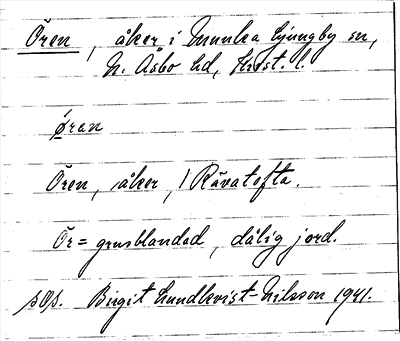 Ören, åker i Munka Ljungby sn,
N. Åsbo hd, Krist. l.
øren
Ören, åker, i Rävatofta.
Ör = grusblandad, dålig jord.
sOs. Birgit Lundkvist-Nilsson 1941.